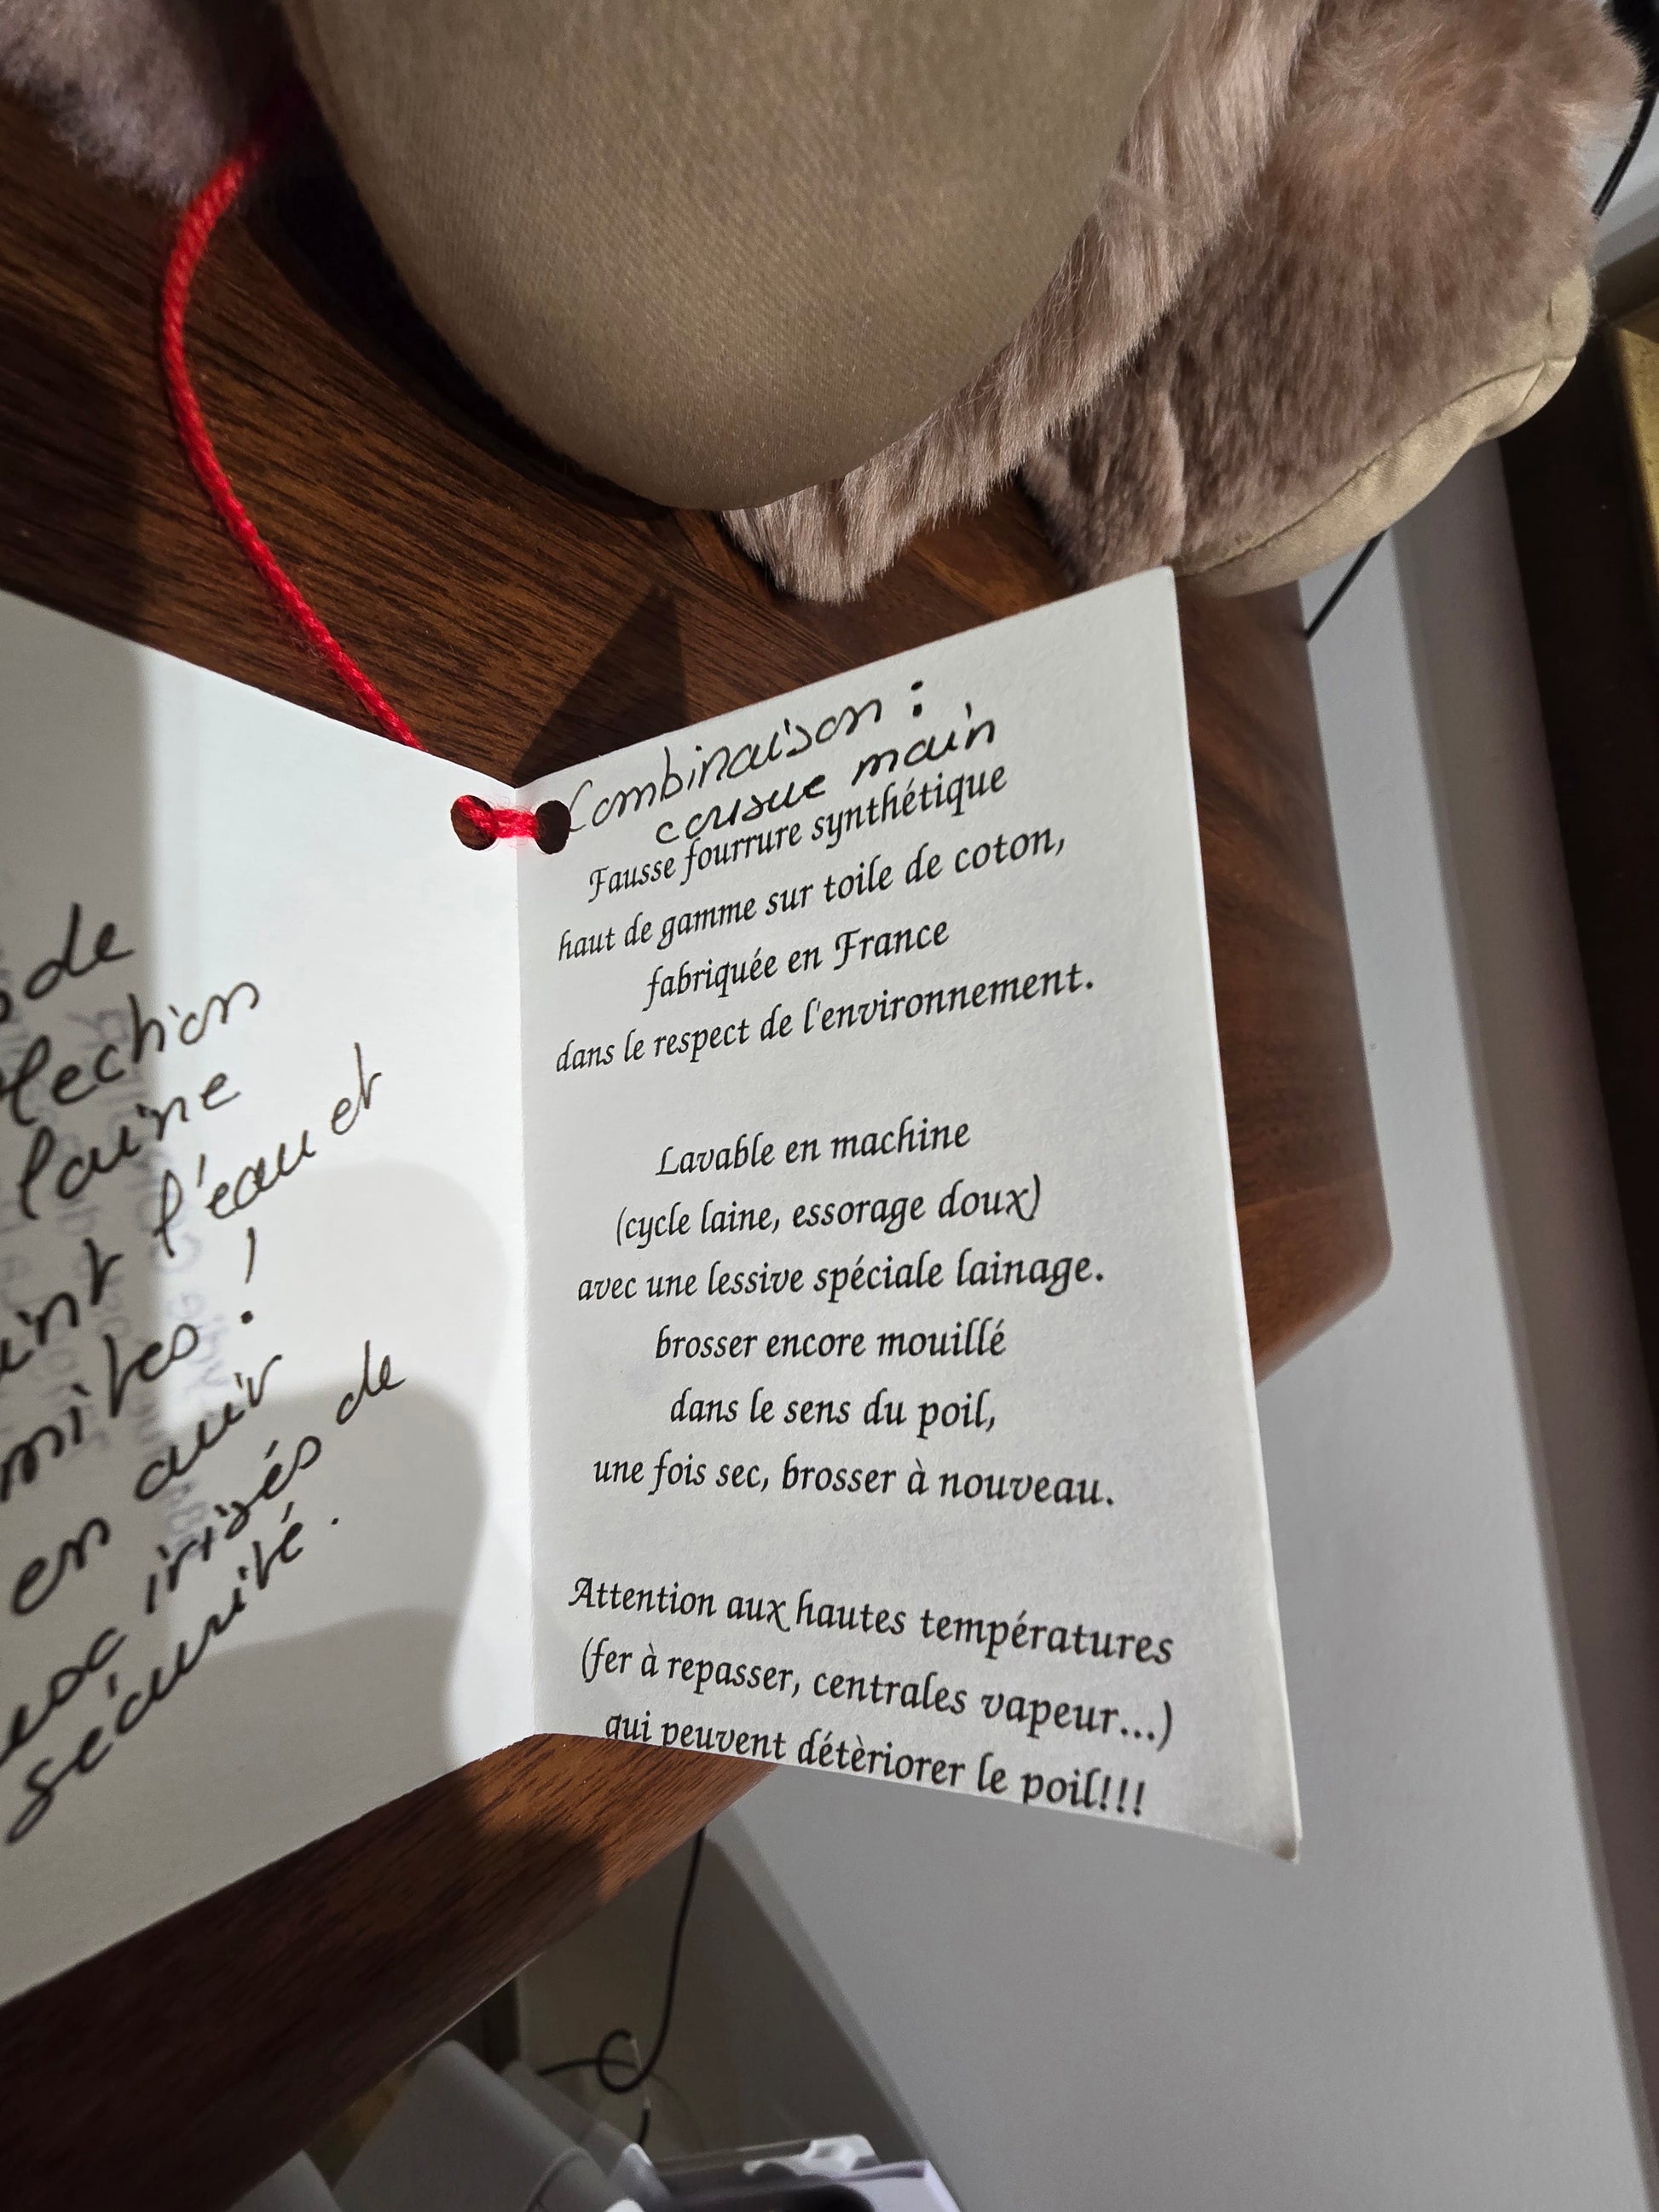 de
laine
l'eau et
!
en cuir
irisés de
sécurité.
Combinaison :
cousue main
Fausse fourrure synthétique
haut de gamme sur toile de coton,
fabriquée en France
dans le respect de l'environnement.
Lavable en machine
(cycle laine, essorage doux)
avec une lessive spéciale lainage.
brosser encore mouillé
dans le sens du poil,
une fois sec, brosser à nouveau.
Attention aux hautes températures
(fer à repasser, centrales vapeur...)
qui peuvent détèriorer le poil!!!